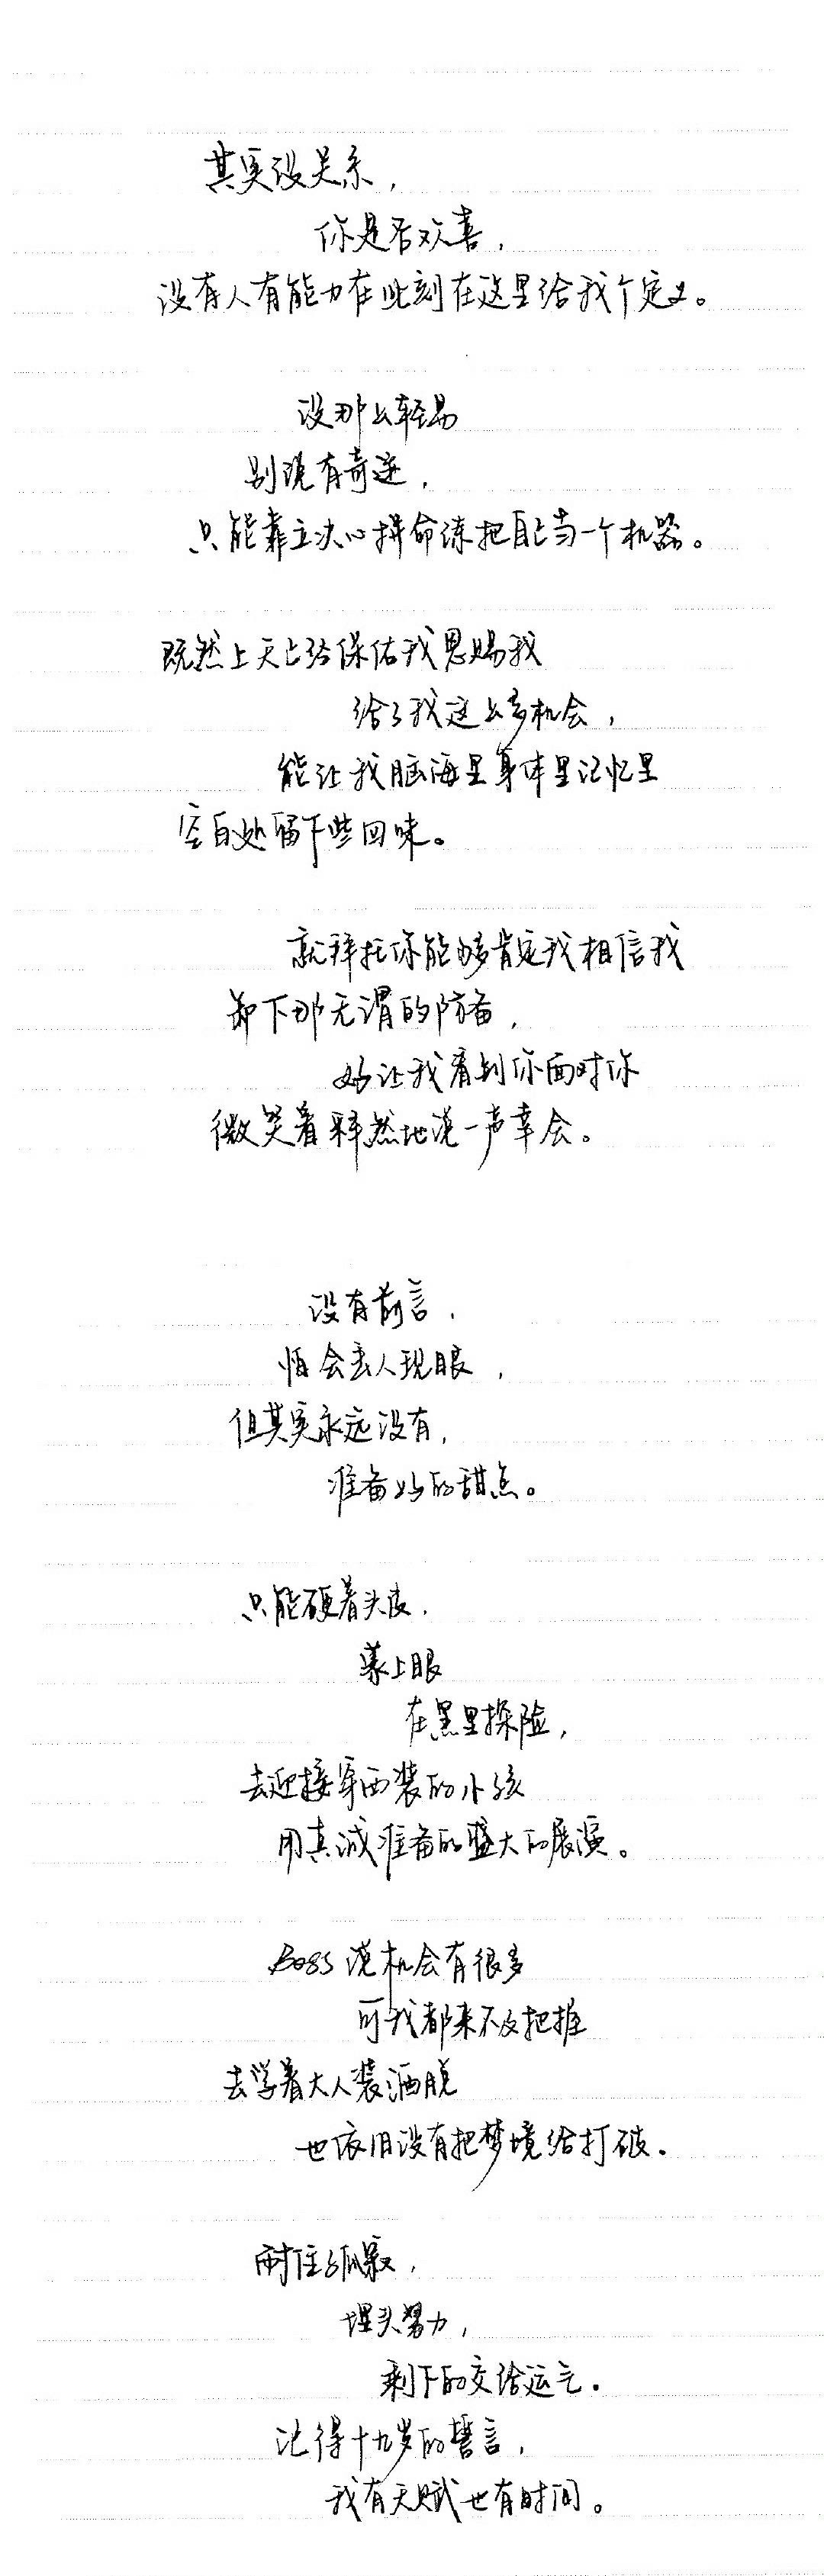 其实没关系，
你是否欢喜，
没有人有能力在此刻在这里给我个定义。
没那么轻易
别说有奇迹，
只能靠立决心拼命练把自己当一个机器。
既然上天已经保佑我恩赐我
给了我这么多机会，
能让我脑海里身体里记忆里
空白处留下些回味。
就拜托你能够肯定我相信我
卸下那无谓的防备，
好让我看到你面对你
微笑着释然地说一声幸会。
没有前言，
怕会丢人现眼，
但其实永远没有，
准备好的甜点。
只能硬着头皮，
蒙上眼
在黑里探险，
去迎接穿西装的小孩
用真诚准备的盛大的展演。
Boss 说机会有很多
可我都来不及把握
去学着大人装洒脱
也依旧没有把梦境给打破。
耐住孤寂，
埋头努力，
剩下的交给运气。
记得十九岁的誓言，
我有天赋也有时间。